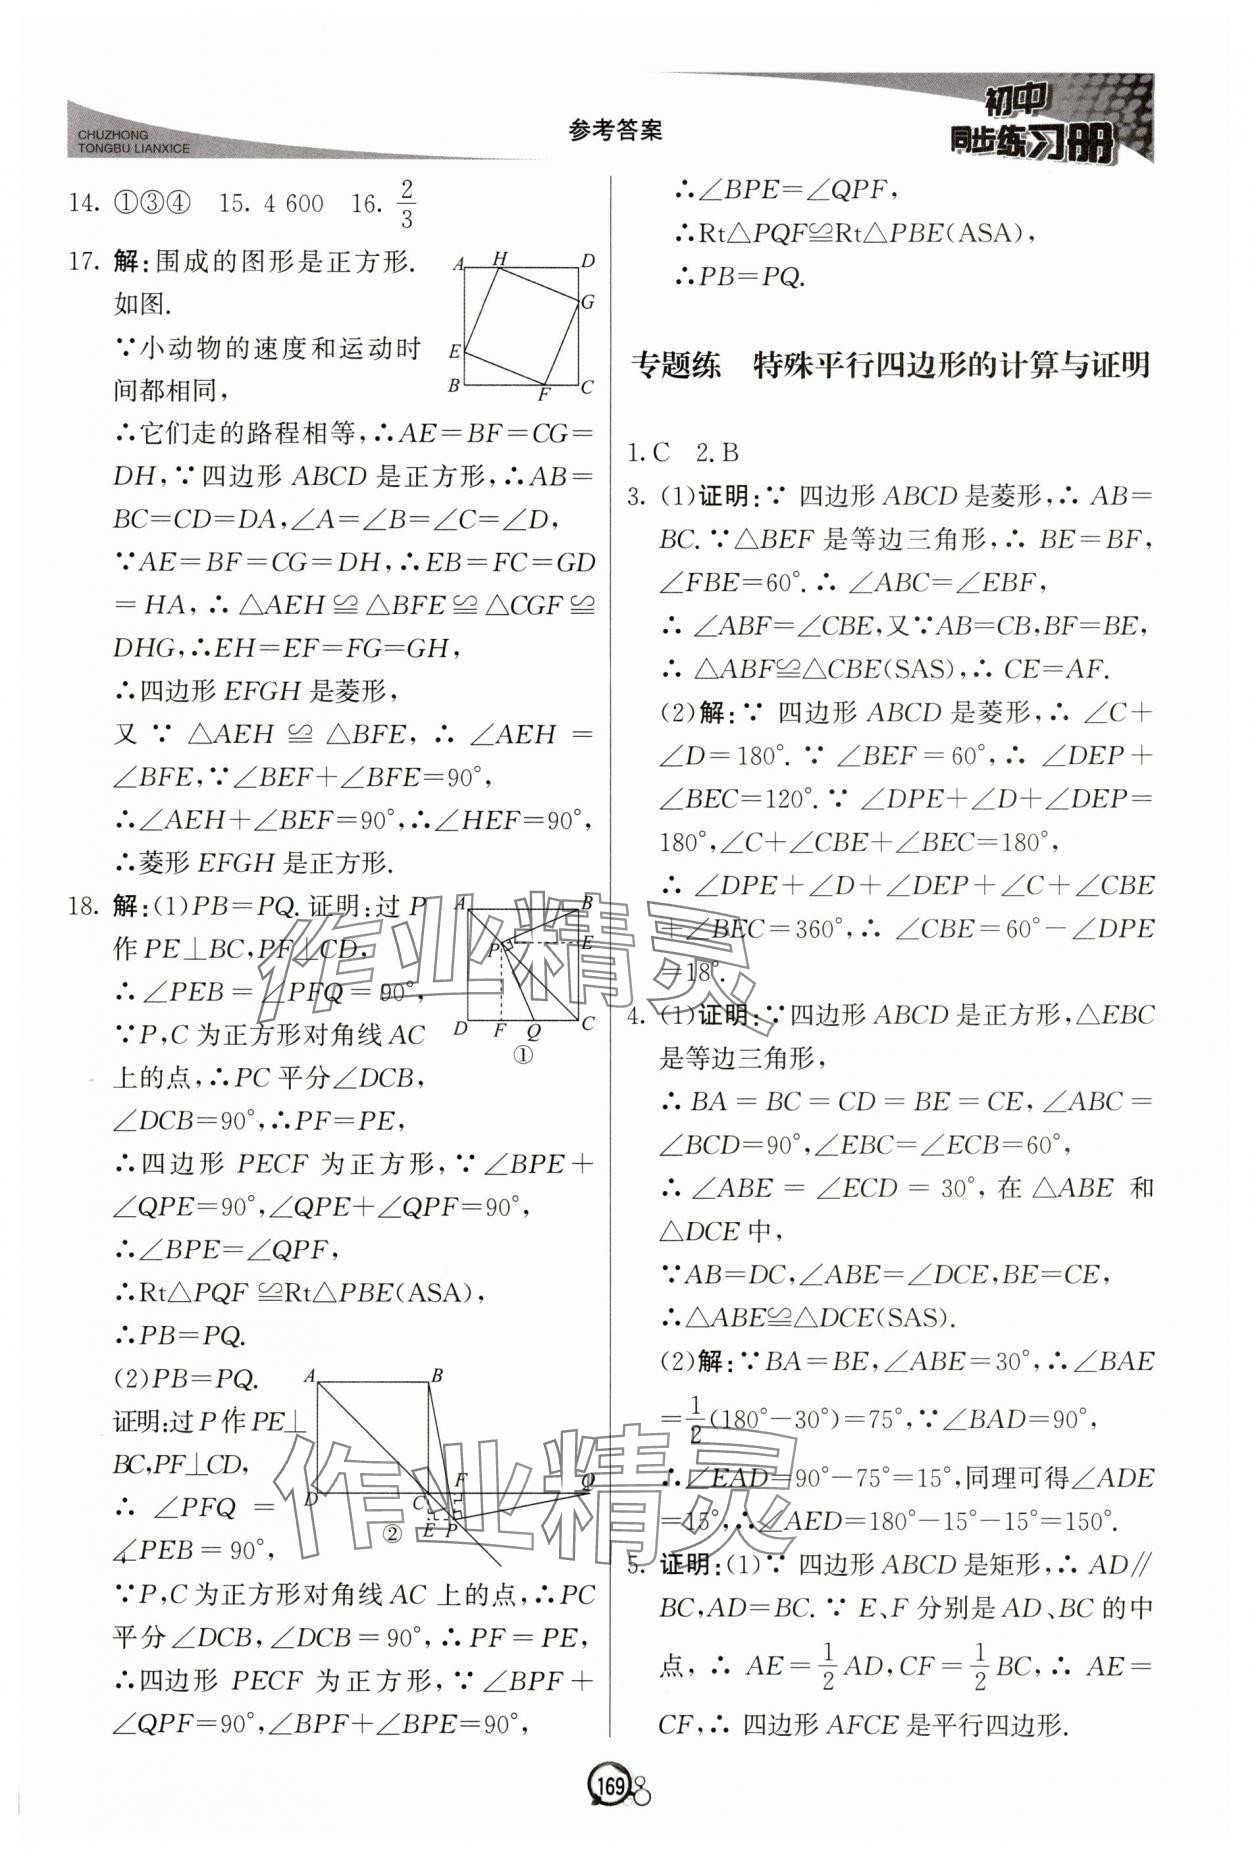 CHUZHONG
TONGBU LIANXICE
参考答案
初中
同步练习册
14. ①③④ 15. 4 600 16. 2/3
17. 解:围成的图形是正方形.
如图.
∵小动物的速度和运动时
间都相同,
A H D
G
E
B F C
∴它们走的路程相等,∴AE=BF=CG=
DH,∵四边形 ABCD 是正方形,∴AB=
BC=CD=DA,∠A=∠B=∠C=∠D,
∵AE=BF=CG=DH,∴EB=FC=GD
=HA,∴△AEH≌△BFE≌△CGF≌
DHG,∴EH=EF=FG=GH,
∴四边形 EFGH 是菱形,
又∵△AEH≌△BFE,∴∠AEH=
∠BFE,∵∠BEF+∠BFE=90°,
∴∠AEH+∠BEF=90°,∴∠HEF=90°,
∴菱形 EFGH 是正方形.
18. 解:(1)PB=PQ.证明:过 P
作 PE⊥BC,PF⊥CD,
∴∠PEB=∠PFQ=90°,
∵P,C 为正方形对角线 AC
上的点,∴PC 平分∠DCB,
A B
P E
D F Q C
①
∠DCB=90°,∴PF=PE,
∴四边形 PECF 为正方形,∵∠BPE+
∠QPE=90°,∠QPE+∠QPF=90°,
∴∠BPE=∠QPF,
∴Rt△PQF≌Rt△PBE(ASA),
∴PB=PQ.
(2)PB=PQ.
证明:过 P 作 PE⊥
BC,PF⊥CD,
∴∠PFQ=
∠PEB=90°,
A B
D C F Q
E P
②
∵P,C 为正方形对角线 AC 上的点,∴PC
平分∠DCB,∠DCB=90°,∴PF=PE,
∴四边形 PECF 为正方形,∵∠BPF+
∠QPF=90°,∠BPF+∠BPE=90°,
∴∠BPE=∠QPF,
∴Rt△PQF≌Rt△PBE(ASA),
∴PB=PQ.
专题练 特殊平行四边形的计算与证明
1. C 2. B
3. (1)证明:∵四边形 ABCD 是菱形,∴AB=
BC.∵△BEF 是等边三角形,∴BE=BF,
∠FBE=60°.∴∠ABC=∠EBF,
∴∠ABF=∠CBE,又∵AB=CB,BF=BE,
∴△ABF≌△CBE(SAS),∴CE=AF.
(2)解:∵四边形 ABCD 是菱形,∴∠C+
∠D=180°.∵∠BEF=60°,∴∠DEP+
∠BEC=120°.∵∠DPE+∠D+∠DEP=
180°,∠C+∠CBE+∠BEC=180°,
∴∠DPE+∠D+∠DEP+∠C+∠CBE
+∠BEC=360°,∴∠CBE=60°-∠DPE
=18°.
4. (1)证明:∵四边形 ABCD 是正方形,△EBC
是等边三角形,
∴BA=BC=CD=BE=CE,∠ABC=
∠BCD=90°,∠EBC=∠ECB=60°,
∴∠ABE=∠ECD=30°,在△ABE 和
△DCE 中,
∵AB=DC,∠ABE=∠DCE,BE=CE,
∴△ABE≌△DCE(SAS).
(2)解:∵BA=BE,∠ABE=30°,∴∠BAE
=1/2(180°-30°)=75°,∵∠BAD=90°,
∴∠EAD=90°-75°=15°,同理可得∠ADE
=15°,∴∠AED=180°-15°-15°=150°.
5. 证明:(1)∵四边形 ABCD 是矩形,∴AD∥
BC,AD=BC.∵E、F 分别是 AD、BC 的中
点,∴AE=1/2 AD,CF=1/2 BC,∴AE=
CF,∴四边形 AFCE 是平行四边形.
作业精灵
作业精灵
169